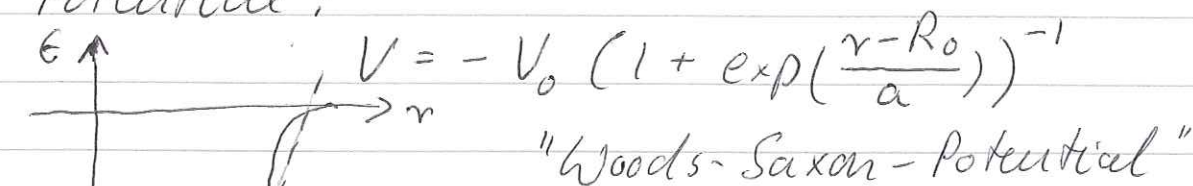 Potential:
ϵ V = - V₀ (1 + exp(\frac{r-R₀}{a}))⁻¹
r
"Woods-Saxon-Potential"